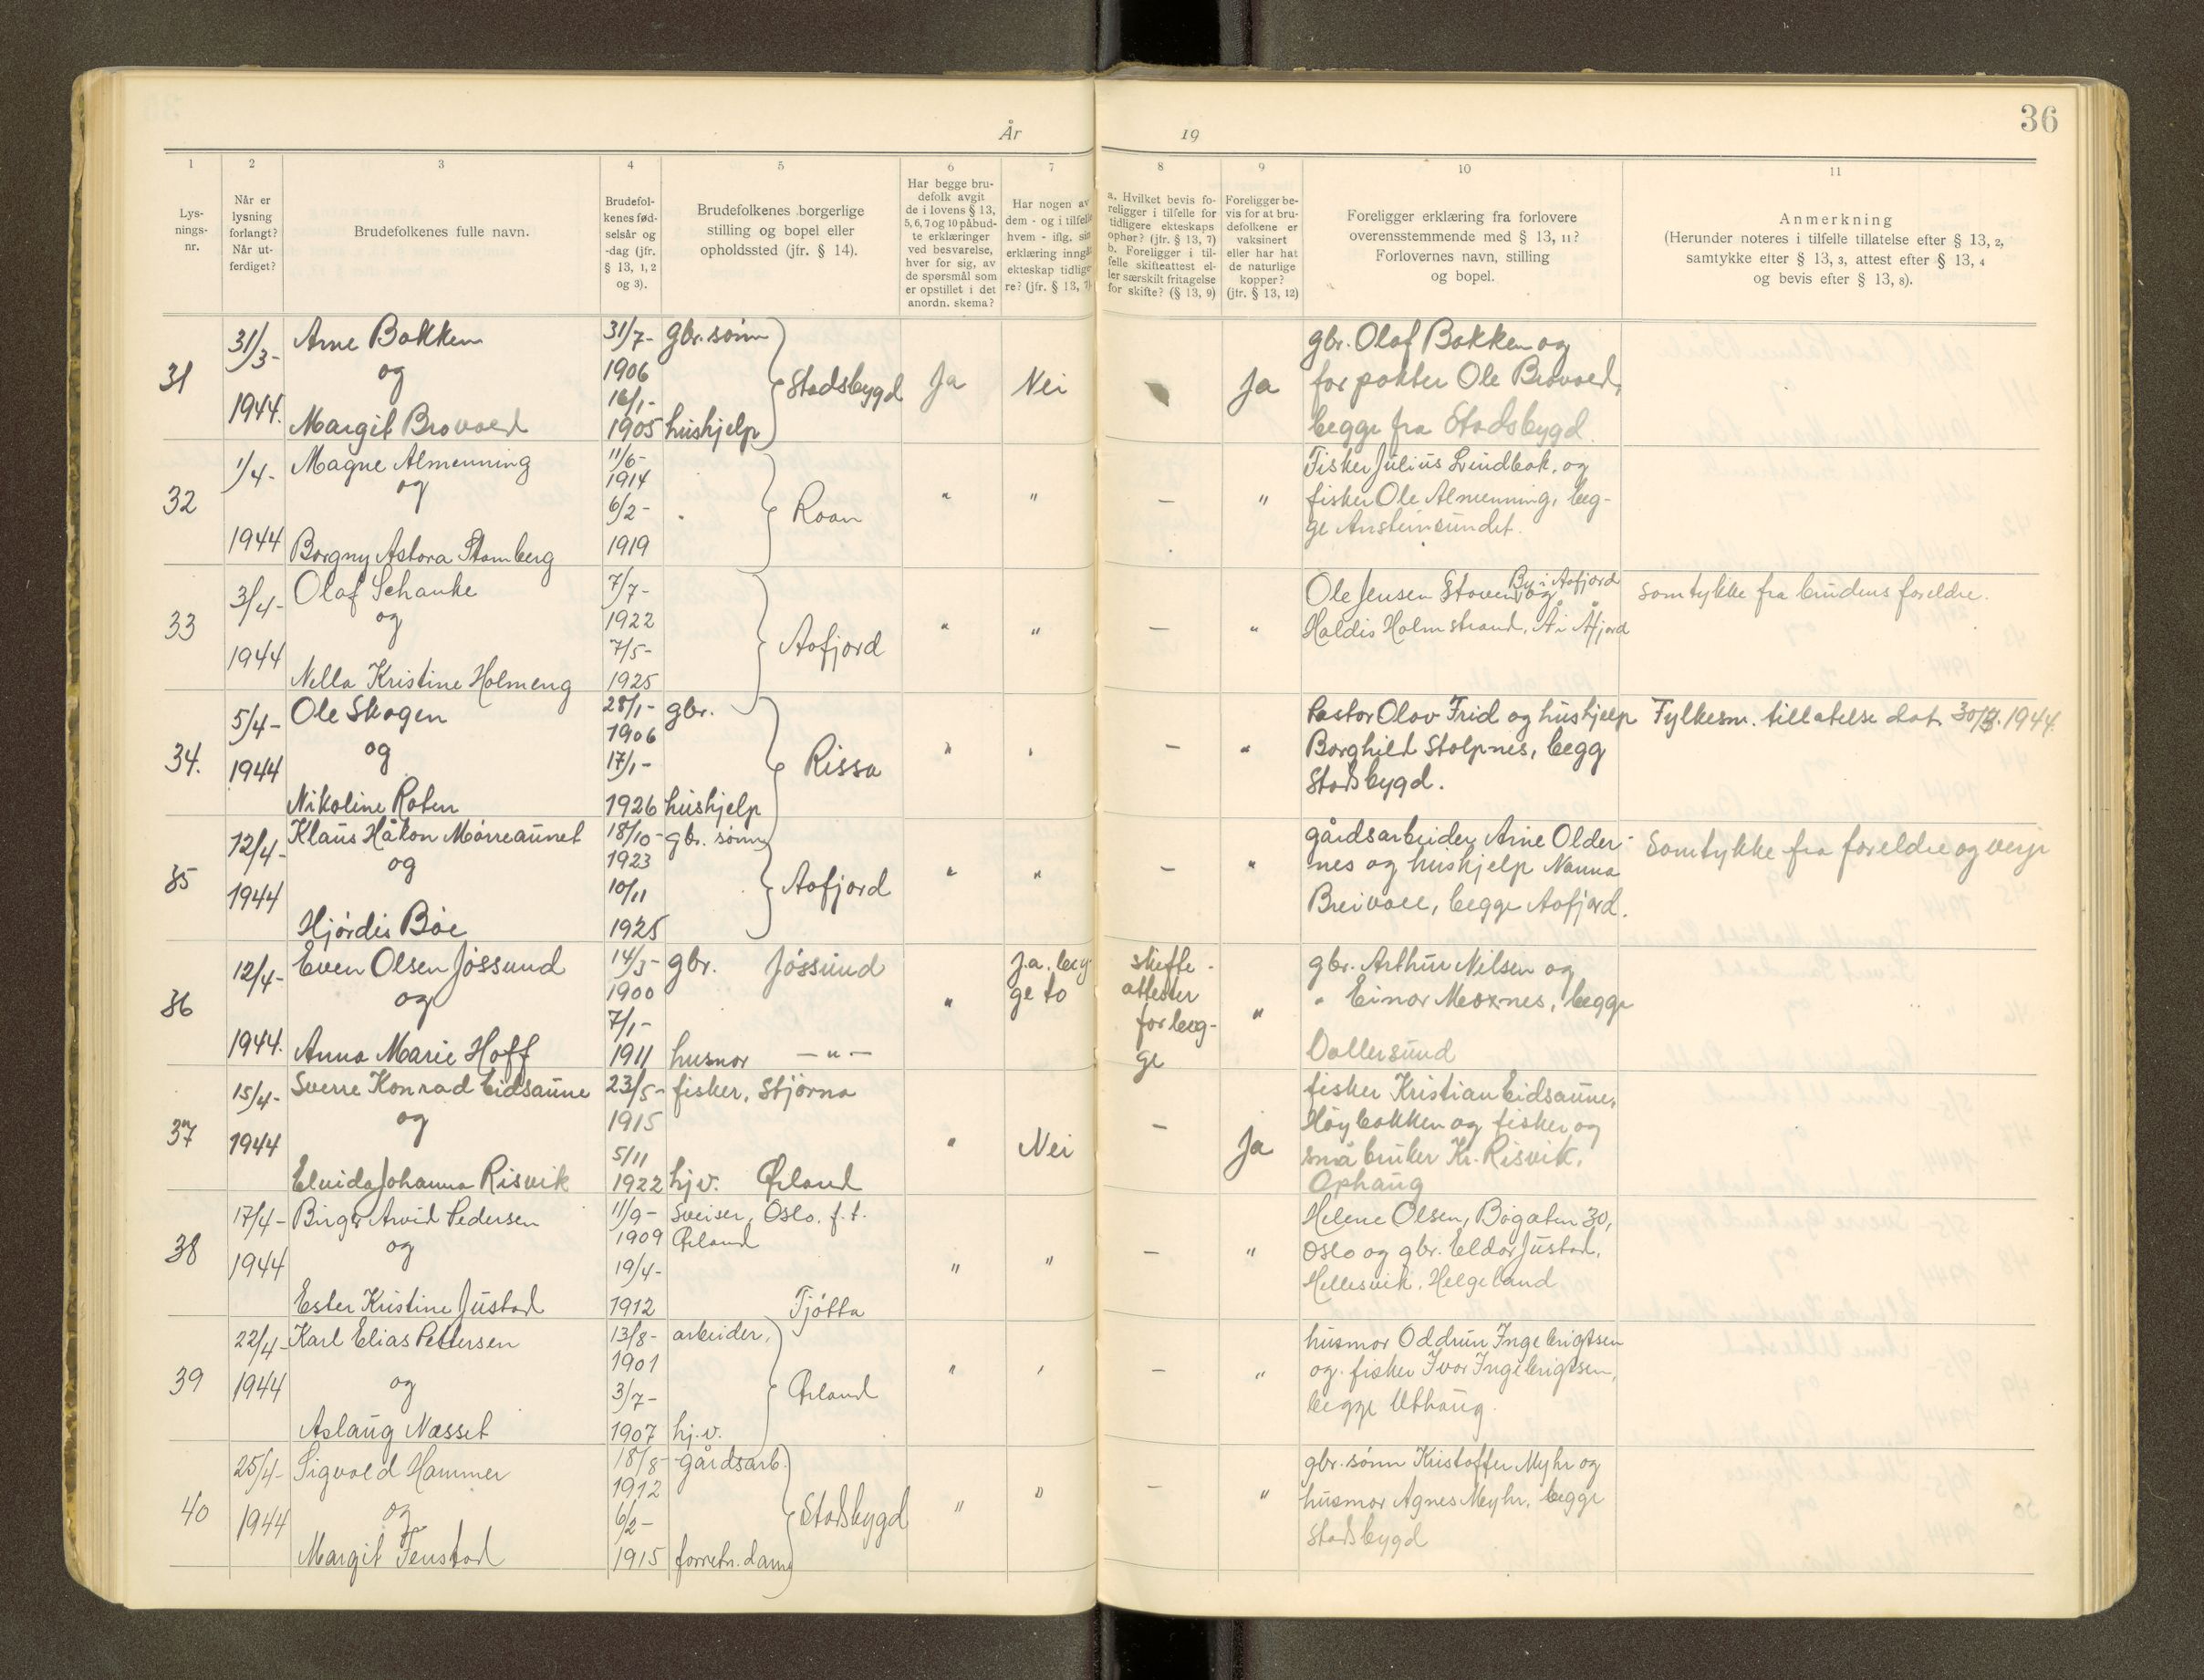 36
År 19
1
2
3
4
5
6
7
8
9
10
11
Lys-
nings-
nr.
Når er
lysning
forlangt?
Når ut-
ferdiget?
Brudefolkenes fulle navn.
Brudefol-
kenes fød-
selsår og
-dag (jfr.
§ 13, 1, 2
og 3).
Brudefolkenes borgerlige
stilling og bopel eller
opholdssted (jfr. § 14).
Har begge bru-
defolk avgit
de i lovens § 13,
5, 6, 7 og 10 påbud-
te erklæringer
ved besvarelse,
hver for sig, av
de spørsmål som
er opstillet i det
anordn. skema?
Har nogen av
dem - og i tilfelle
hvem - iflg. sin
erklæring inngå
ekteskap tidlige-
re? (jfr. § 13, 7)
a. Hvilket bevis fo-
religger i tilfelle for
tidligere ekteskaps
ophør? (jfr. § 13, 7)
b. Foreligger i til-
felle skifteattest el-
ler særskilt fritagelse
for skifte? (§ 13, 9)
Foreligger be-
vis for at bru-
defolkene er
vaksinert
eller har hat
de naturlige
kopper?
(jfr. § 13, 12)
Foreligger erklæring fra forlovere
overensstemmende med § 13, 11?
Forlovernes navn, stilling
og bopel.
Anmerkning
(Herunder noteres i tilfelle tillatelse efter § 13, 2,
samtykke efter § 13, 3, attest efter § 13, 4
og bevis efter § 13, 8).
31
31/3-
1944.
Arne Bakken
og
Margit Brovold
31/7-
1906
16/1-
1905
gbr. sønn
hushjelp
Stadsbygd
Ja
Nei
Ja
gbr. Olaf Bakken og
forpakter Ole Brovold,
begge fra Stadsbygd.
32
1/4-
1944
Magne Almenning
og
Borgny Astora Stamberg
11/6-
1914
6/2-
1919
Roan
"
"
–
"
Fisker Julius Lindbak, og
fisker Ole Almenning, beg-
ge Ansteinsundet.
33
3/4-
1944
Olaf Schanke
og
Nella Kristine Holmeng
7/7-
1922
7/5-
1925
Aafjord
"
"
–
"
By i Aafjord
Ole Jensen Staven, og
Haldis Holmstrand, Å i Åfjord
Samtykke fra brudens foreldre.
34.
5/4-
1944
Ole Skogen
og
Nikoline Roten
28/1-
1906
17/1-
1926
gbr.
hushjelp
Rissa
"
"
–
"
Pastor Olav Frid og hushjelp
Borghild Stolpnes, begg
Stadsbygd.
Fylkesm. tillatelse dat. 30/3. 1944.
35
12/4-
1944
Klaus Håkon Mørreaunet
og
Hjördis Böe
18/10-
1923
10/11
1925
gbr. sønn
Aafjord
"
"
–
"
gårdsarbeider Arne Older-
nes og hushjelp Nanna
Breivoll, begge Aafjord.
Samtykke fra foreldre og verje
36
12/4-
1944.
Even Olsen Jössund
og
Anna Marie Hoff
14/3-
1900
7/1-
1911
gbr. Jössund
husmor –"–
"
Ja. beg-
ge to
skifte-
attester
for beg-
ge
"
gbr. Arthur Nilsen og
" Einar Moxnes, begge
Vallersund
37
15/4-
1944
Sverre Konrad Eidsaune
og
Elvida Johanna Risvik
23/5-
1915
5/11
1922
fisker, Stjørna
hj.v. Ørland
"
Nei
–
Ja
fisker Kristian Eidsaune,
Høybakken og fisker og
småbruker Kr. Risvik,
Ophaug
38
17/4-
1944
Birger Arvid Pedersen
og
Ester Kristine Justad
11/9-
1909
19/4-
1912
Sveiser, Oslo. f. t.
Ørland
Tjøtta
"
"
–
"
Helene Olsen, Bøgaten 30,
Oslo og gbr. Eldar Justad,
Hellesvik, Helgeland
39
22/4-
1944
Karl Elias Pettersen
og
Aslaug Næsset
13/8-
1901
3/7-
1907
arbeider,
hj.v.
Ørland
"
"
–
"
husmor Oddrun Ingebrigtsen
og fisker Ivar Ingebrigtsen,
begge Uthaug.
40
25/4-
1944
Sigvald Hammer
og
Margit Fenstad
18/8-
1912
6/2-
1915
gårdsarb.
forretn.dame
Stadsbygd
"
"
–
"
gbr. sønn Kristoffer Myhr og
husmor Agnes Myhr, begge
Stadsbygd